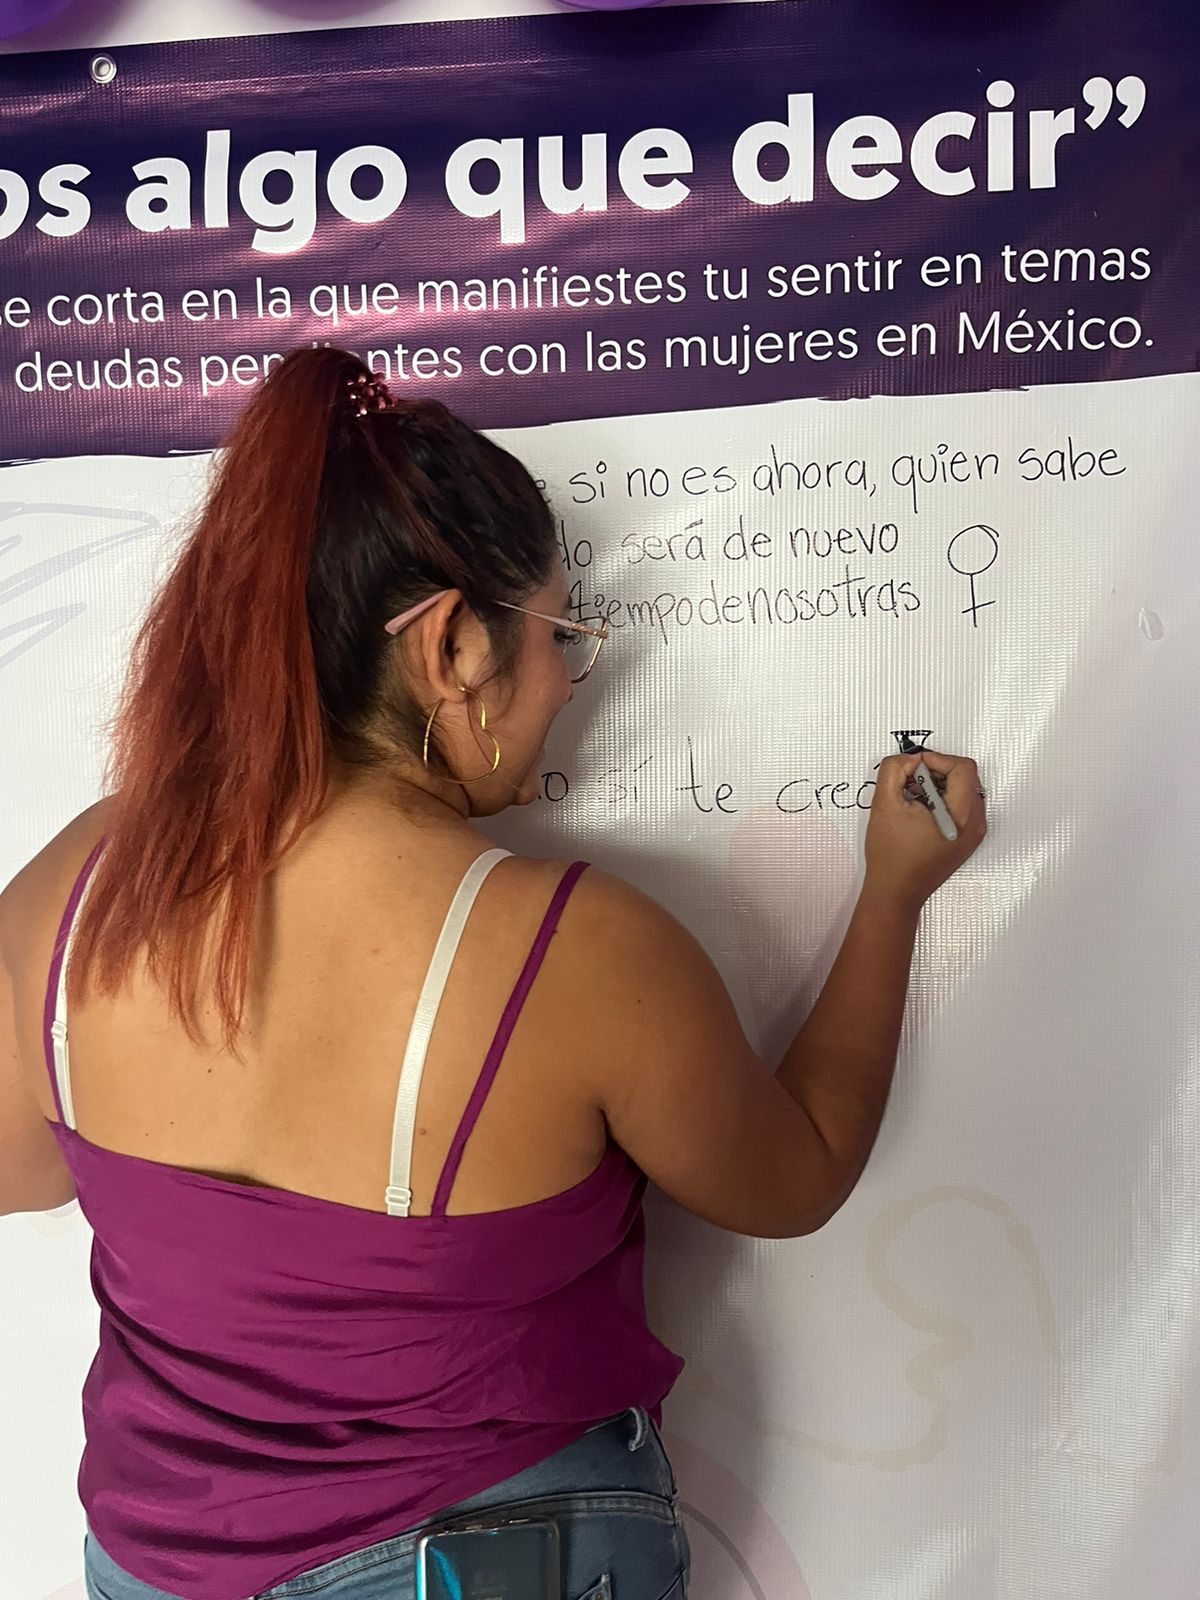 os algo que decir”
se corta en la que manifiestes tu sentir en temas
deudas pendientes con las mujeres en México.
si no es ahora, quien sabe
será de nuevo
tiempo de nosotras
sí te creo